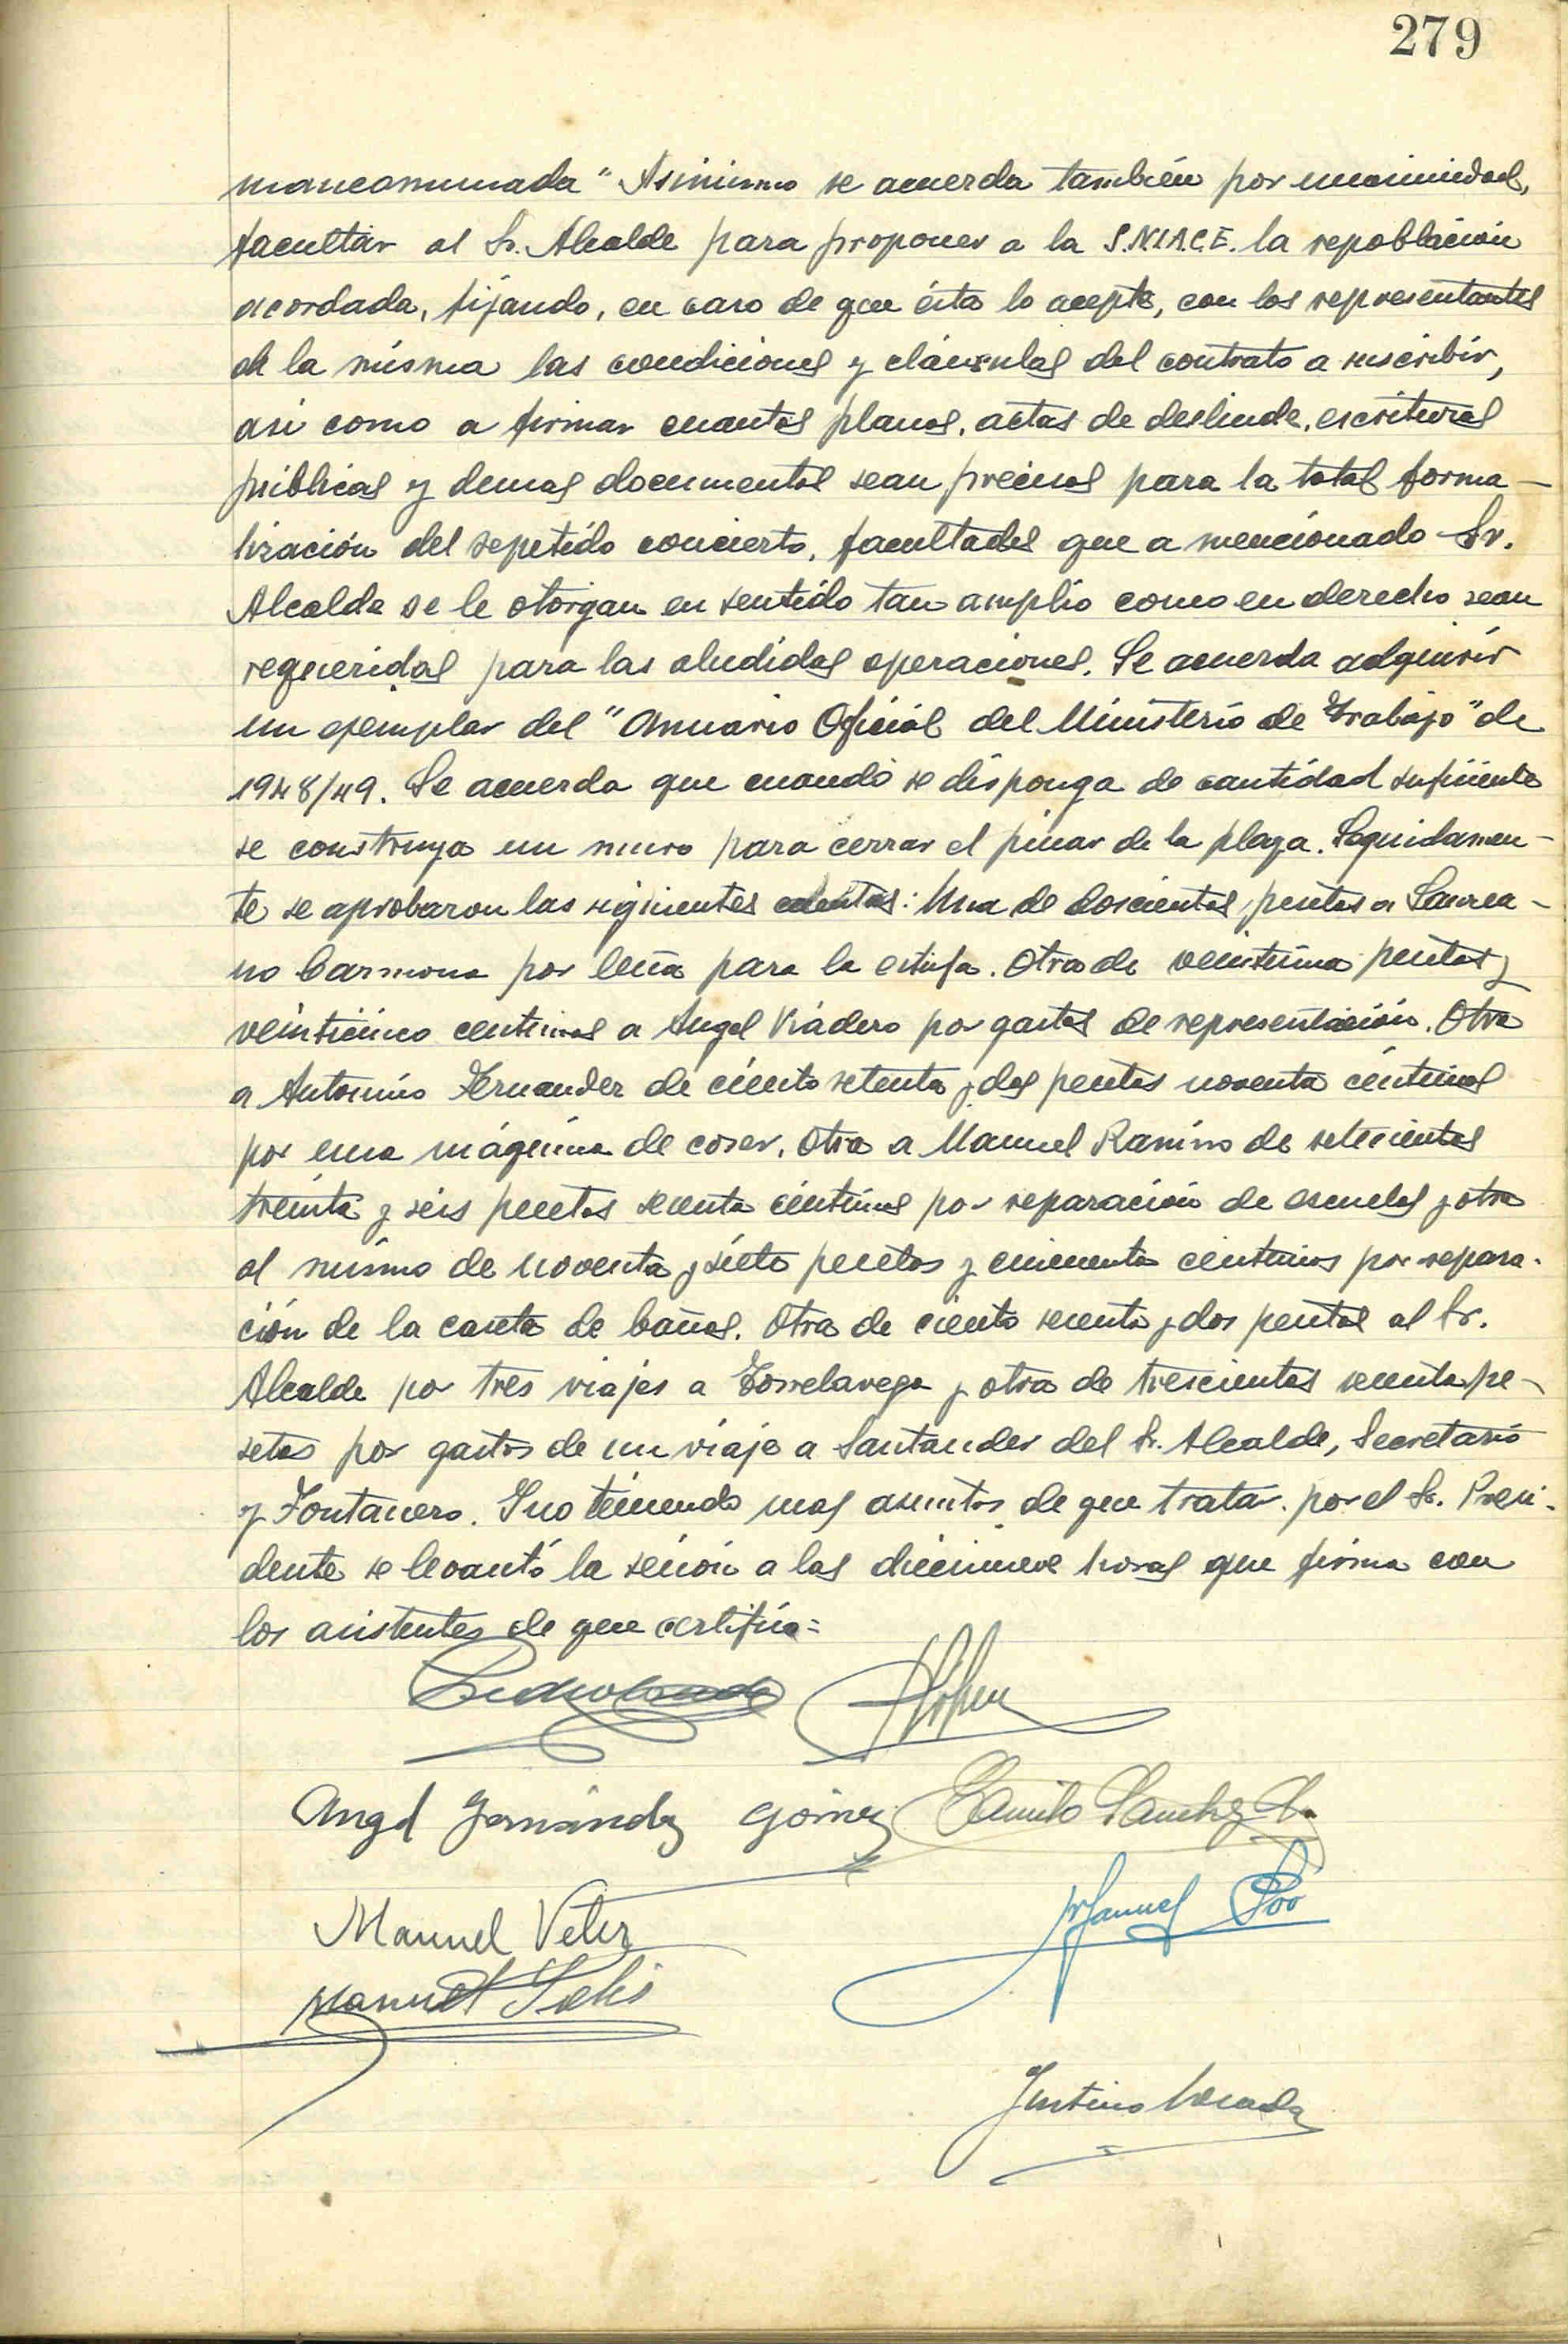 279
mancomunada" Asimismo se acuerda también por unanimidad,
facultar al Sr. Alcalde para proponer a la S.N.I.A.C.E. la repoblación
acordada, fijando, en caso de que ésta lo acepte, con los representantes
de la misma las condiciones y cláusulas del contrato a suscribir,
asi como a firmar cuantos planos, actas de deslinde, escrituras
públicas y demas documentos sean precisos para la total forma-
lización del repetido concierto, facultades que a mencionado Sr.
Alcalde se le otorgan en sentido tan amplio como en derecho sean
requeridas para las aludidas operaciones. Se acuerda adquirir
un ejemplar del "Anuario Oficial del Ministerio de Trabajo" de
1948/49. Se acuerda que cuando se disponga de cantidad suficiente
se construya un muro para cerrar el pinar de la playa. Seguidamen-
te se aprobaron las siguientes cuentas: Una de doscientas pesetas a Laurea-
no Carmona por leña para la estufa. Otra de veintiuna pesetas y
veinticinco centimos a Angel Viadero por gastos de representación. Otra
a Antonino Fernandez de ciento setenta y dos pesetas noventa céntimos
por una máquina de coser. Otra a Manuel Ramiro de setecientas
treinta y seis pesetas sesenta céntimos por reparación de escuelas y otra
al mismo de noventa y siete pesetas y cincuenta centimos por repara-
ción de la caseta de baños. Otra de ciento sesenta y dos pesetas al Sr.
Alcalde por tres viajes a Torrelavega y otra de trescientas sesenta pe-
setas por gastos de un viaje a Santander del Sr. Alcalde, Secretario
y Fontanero. Y no teniendo mas asuntos de que tratar por el Sr. Presi-
dente se levantó la sesión a las diecinueve horas que firma con
los asistentes de que certifico=
Angel Fernández Gómez Camilo Sanchez
Manuel Velez Manuel Poo
Manuel Solis
Justino